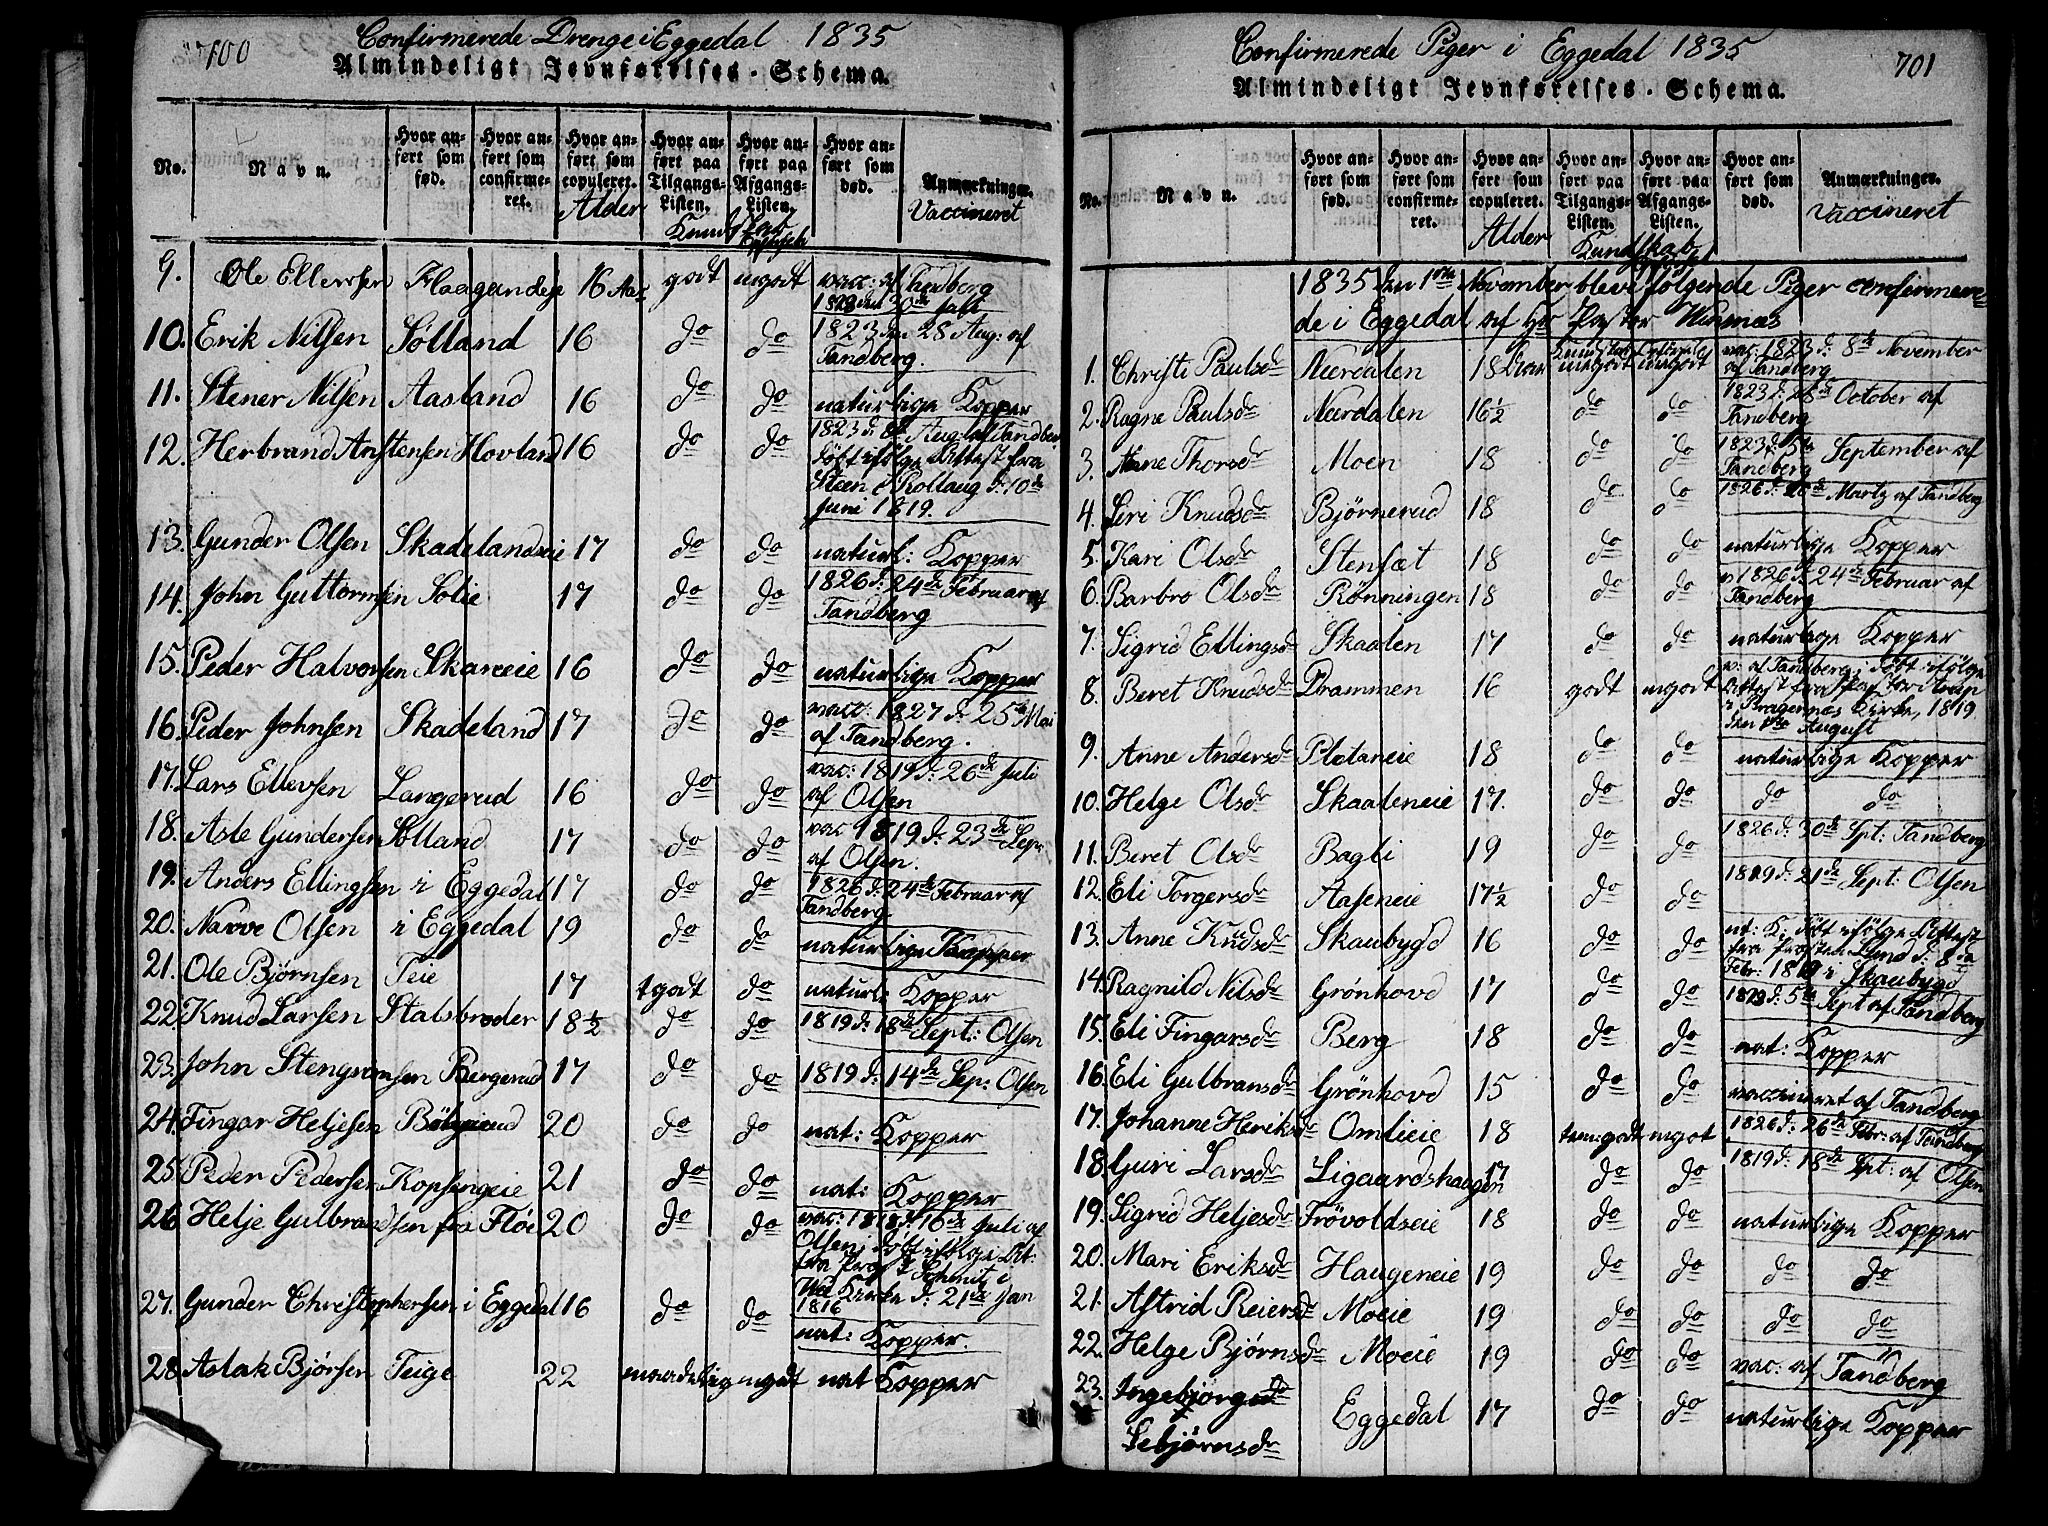 700
Confirmerede Drenge i Eggedal 1835
Almindeligt Jevnførelses-Schema.
No.
Navn.
Hvor anført som fød.
Hvor anført som confirmeret.
Hvor anført som copuleret.
Hvor anført paa Tilgangs-Listen.
Hvor anført paa Afgangs-Listen.
Hvor anført som død.
Anmærkninger.
Alder
Vaccineret
9. Ole Ellevsen 16 Aar godt mgodt vacc: af Tandberg
10. Erik Nilsen Sølland 16 do do 1823 den 28 Aug: af
Tandberg.
11. Stener Nilsen Aasland 16 do do naturlige Kopper
12. Herbrand Hovland 16 do do 1823 d: Aug: af Tandber
døbt ifølge Attest fra
Steen i Rollaug d: 10de
Juni 1819.
13. Gunder Olsen Skadelandseie 17 do do naturl: Kopper
14. John Guttormsen Solie 17 do do 1826 d: 24de Februar af
Tandberg
15. Peder Halvorsen Skareeie 16 do do naturlige Kopper
16. Peder Johnsen Skadeland 17 do do vacc: 1827 d: 25de Mai
af Tandberg.
17. Lars Ellevsen Langerud 16 do do vac: 1819 d: 26de Juli
af Olsen
18. Asle Gundersen Solland 17 do do vac 1819 d: 23de Sep:
af Olsen.
19. Anders Ellingsen i Eggedal 17 do do 1826 d: 24de Februar af
Tandberg
20. Narve Olsen i Eggedal 19 do do naturlige Kopper
21. Ole Bjørnsen Teie 17 tgodt do naturl: Kopper
22. Knud Larsen Stalsbroder 18½ do do 1819 d: 18de Sept: Olsen
23. John Stengrimsen Bergerud 17 do do 1819 d: 14de Sep: Olsen
24. Fingar Heljesen 20 do do nat: Kopper
25. Peder Pedersen Kopsengeie 21 do do nat: Kopper
26. Helje Gulbrandsen fra Fløe 20 do do vac: 1818 d: 16de Juli af
Olsen, døbt ifølge Att:
fra Præst Schmit i
Kirke d: 21de Jan
1816
27. Gunder Christophersen i Eggedal 16 do do nat: Kopper.
28. Aslak Bjørsen Teige 22 maadelig mgodt nat Kopper
Confirmerede Piger i Eggedal 1835
701
Almindeligt Jevnførelses-Schema.
No.
Navn.
Hvor anført som fød.
Hvor anført som confirmeret.
Hvor anført som copuleret.
Hvor anført paa Tilgangs-Listen.
Hvor anført paa Afgangs-Listen.
Hvor anført som død.
Anmærkninger.
Alder
Kundskab
Vaccineret
1835 den 1ste November bleve følgende Piger confirmere-
de i Eggedal af Hr Pastor
1. Christi Paulsdr Nærdalen 18 Aar mgodt mgodt vac: 1823 d: 8de November
af Tandberg
2. Ragne Paulsdr Nærdalen 16½ do do 1823 d: 28de October af
Tandberg
3. Anne Thorsdr Moen 18 do do 1823 d: 5te September af
Tandberg
4. Siri Knudsdr Bjørnerud 18 do do 1826 d: Martz af Tandberg
5. Kari Olsdr Stensæt 18 do do naturlige Kopper
6. Barbro Olsdr Rønningen 18 do do 1826 d: 24de Februar af
Tandberg
7. Sigrid Ellingsdr Skaalen 17 do do naturlige Kopper
8. Beret Knudsdr Drammen 16 godt mgodt v: af Tandberg; døbt ifølge
Attest fra Pastor
i Bragernæs Kirke, 1819
den August
9. Anne Andersdr Plataneie 18 do do naturlige Kopper
10. Helge Olsdr Skaaleneie 17. do do do do
11. Beret Olsdr Bagli 19 do do 1826 d: 30de Spt: Tandberg
12. Eli Torgersdr Aaseneie 17½ do do 1819 d: 21de Sept: Olsen
13. Anne Knudsdr Skaubygd 16 do do nat: K: døbt ifølge Attest
fra Præsten Lund d: 8de
Febr: 1819 i Skaubygd
14. Ragnild Nilsdr Grønhovd 17 do do d: 5te Sept af Tandberg
15. Eli Fingarsdr Berg 18 do do nat: Kopper
16. Eli Gulbransdr Grønhovd 15 do do vaccineret af Tandberg
17. Johanne Heriksdr Omlieie 18 tem: godt mgot 1826 d: 26de Febr: af Tandberg
18. Guri Larsdr Ligaardshaugen 17 do do 1819 d: 18de Spt: af Olsen
19. Sigrid Heljesdr Frøvoldseie 18 do do naturlige Kopper
20. Mari Eriksdr Haugeneie 19 do do do do
21. Astrid Reiersdr Moeie 19 do do do do
22. Helge Bjørnsdr Moeie 19 do do vac: af Tandberg
23. Ingebjørg
Sebjørnsdr Eggedal 17 do do naturlige Kopper